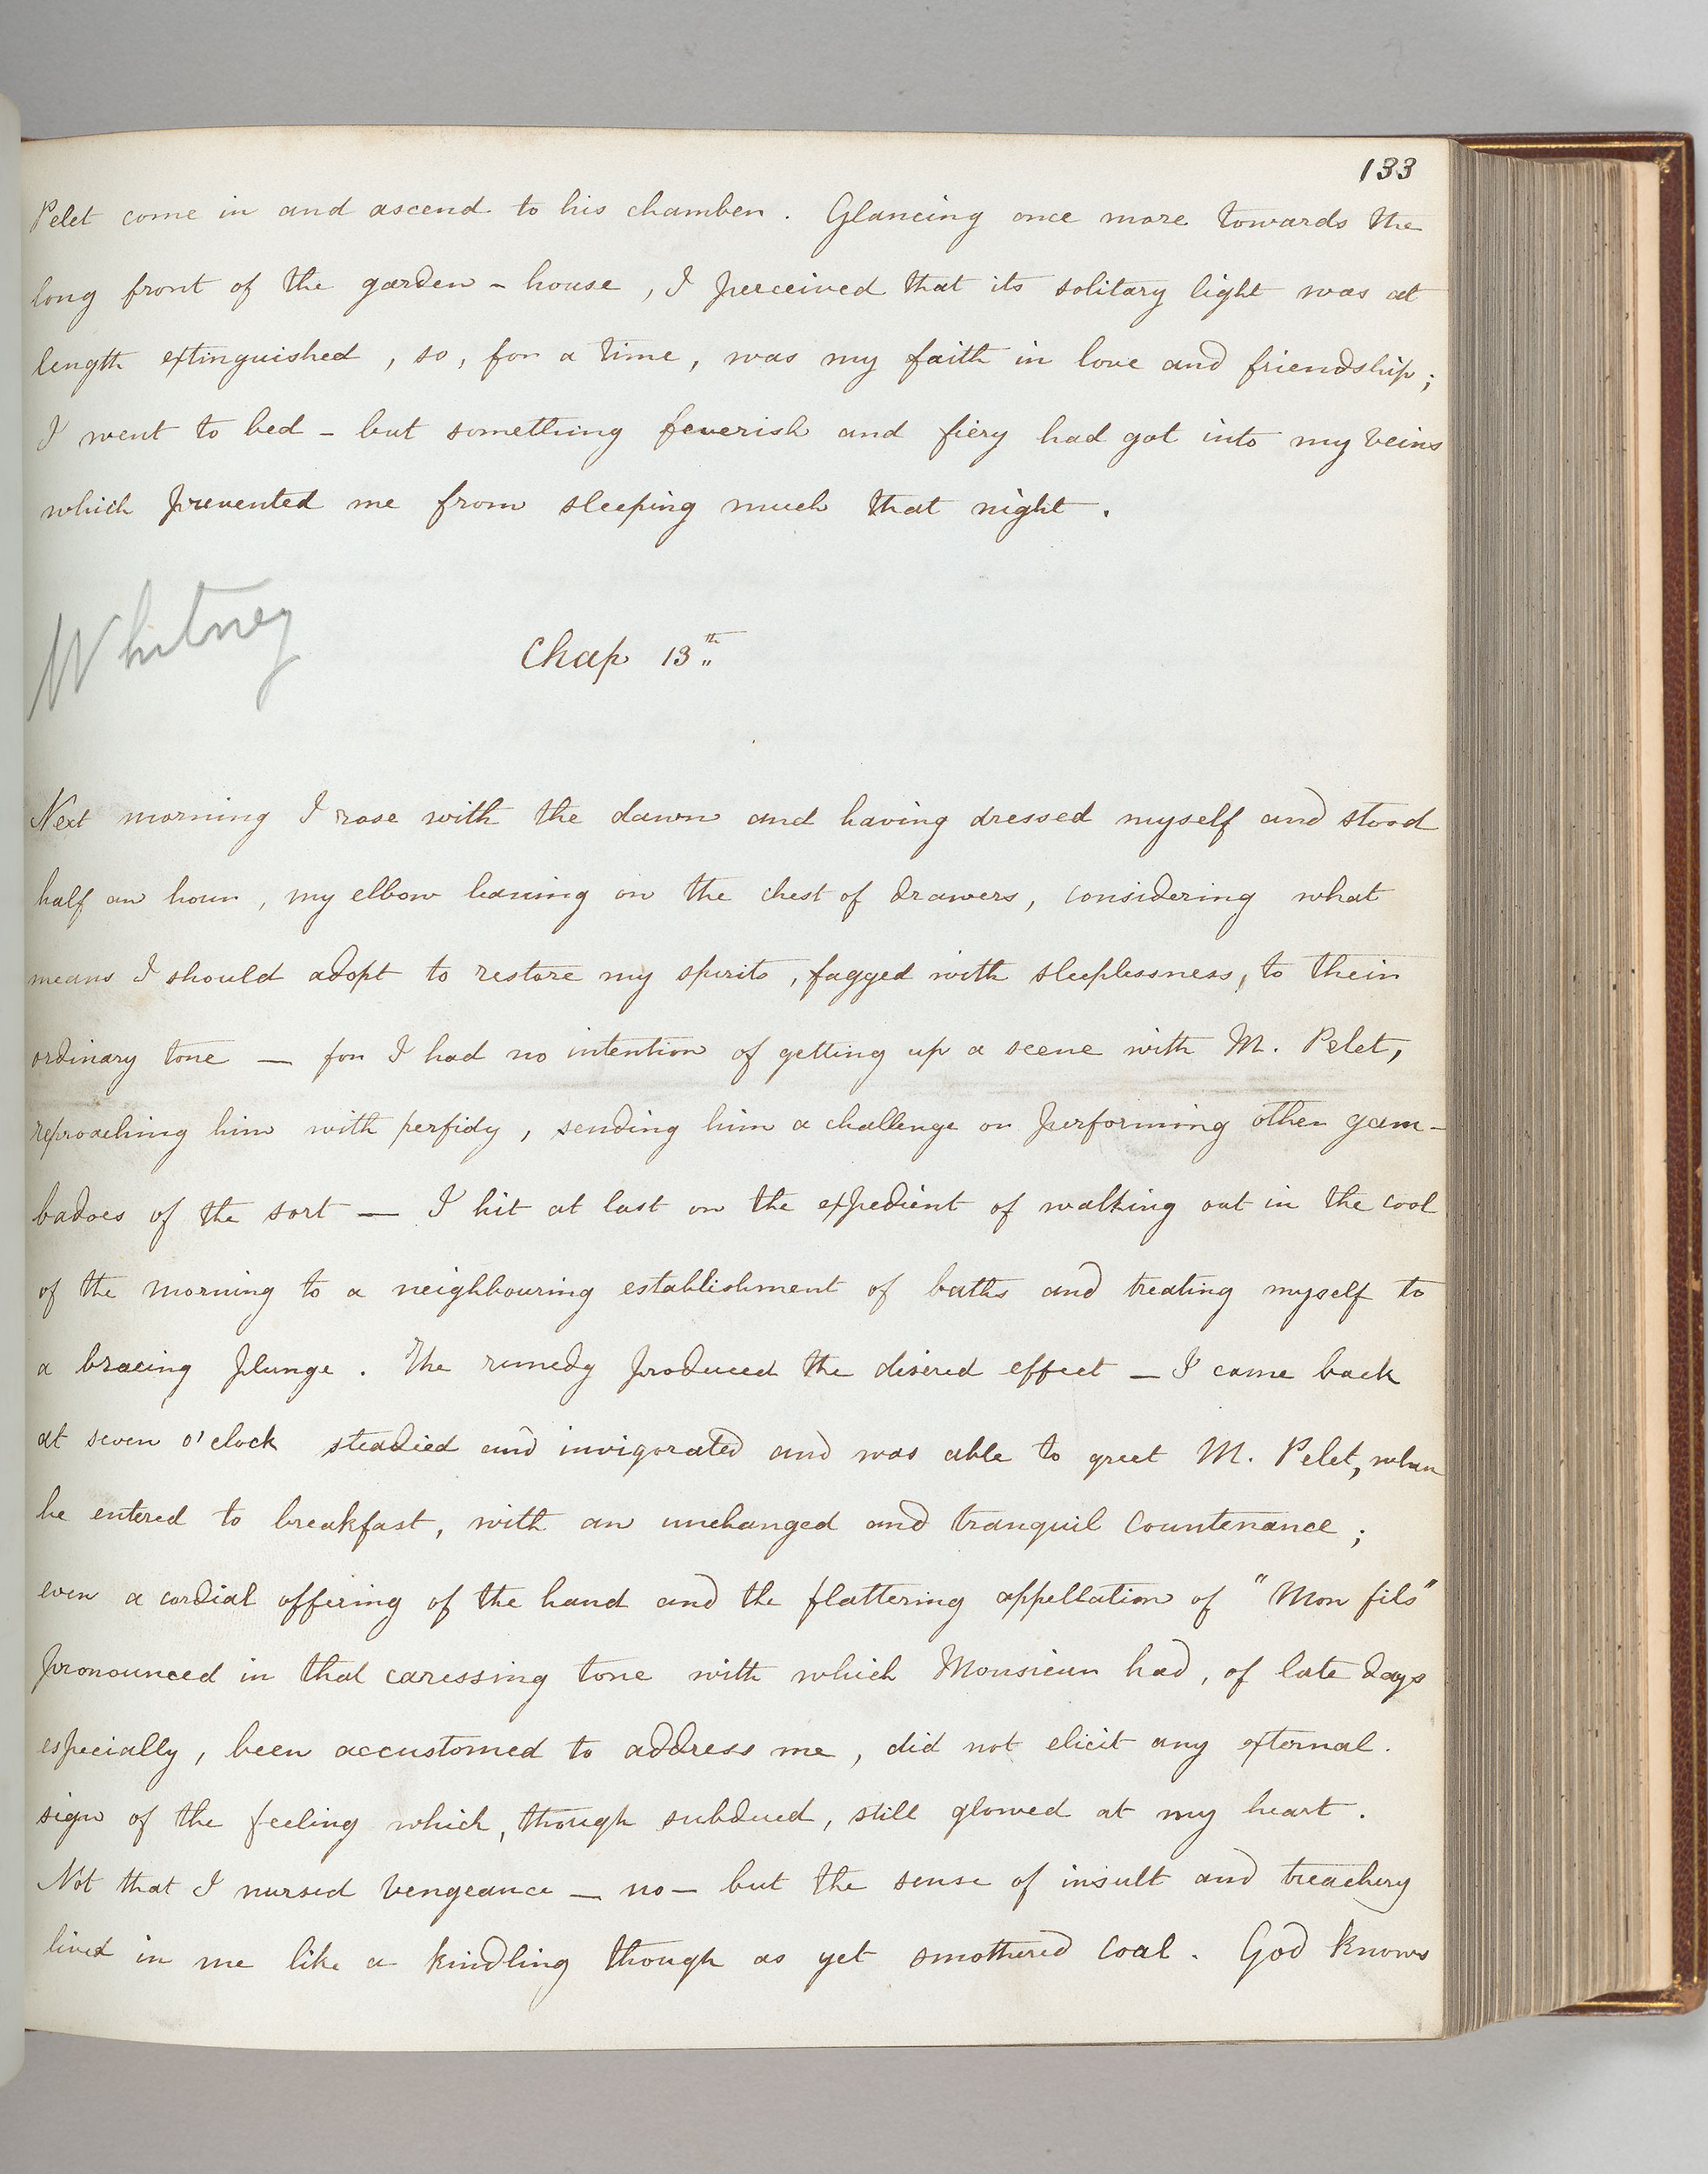 133
Pelet come in and ascend to his chamber. Glancing once more towards the
long front of the garden-house, I perceived that its solitary light was at
length extinguished, so, for a time, was my faith in love and friendship;
I went to bed - but something feverish and fiery had got into my veins
which prevented me from sleeping much that night.
Whitney
Chap 13th
Next morning I rose with the dawn and having dressed myself and stood
half an hour, my elbow leaning on the chest of drawers, considering what
means I should adopt to restore my spirits, fagged with sleeplessness, to their
ordinary tone — for I had no intention of getting up a scene with M. Pelet,
reproaching him with perfidy, sending him a challenge or performing other gam-
badoes of the sort — I hit at last on the expedient of walking out in the cool
of the morning to a neighbouring establishment of baths and treating myself to
a bracing plunge. The remedy produced the desired effect — I came back
at seven o'clock steadied and invigorated and was able to greet M. Pelet, when
he entered to breakfast, with an unchanged and tranquil countenance;
even a cordial offering of the hand and the flattering appellation of "Mon fils"
pronounced in that caressing tone with which Monsieur had, of late days
especially, been accustomed to address me, did not elicit any external.
sign of the feeling which, though subdued, still glowed at my heart.
Not that I nursed vengeance — no — but the sense of insult and treachery
lived in me like a kindling though as yet smothered coal. God knows